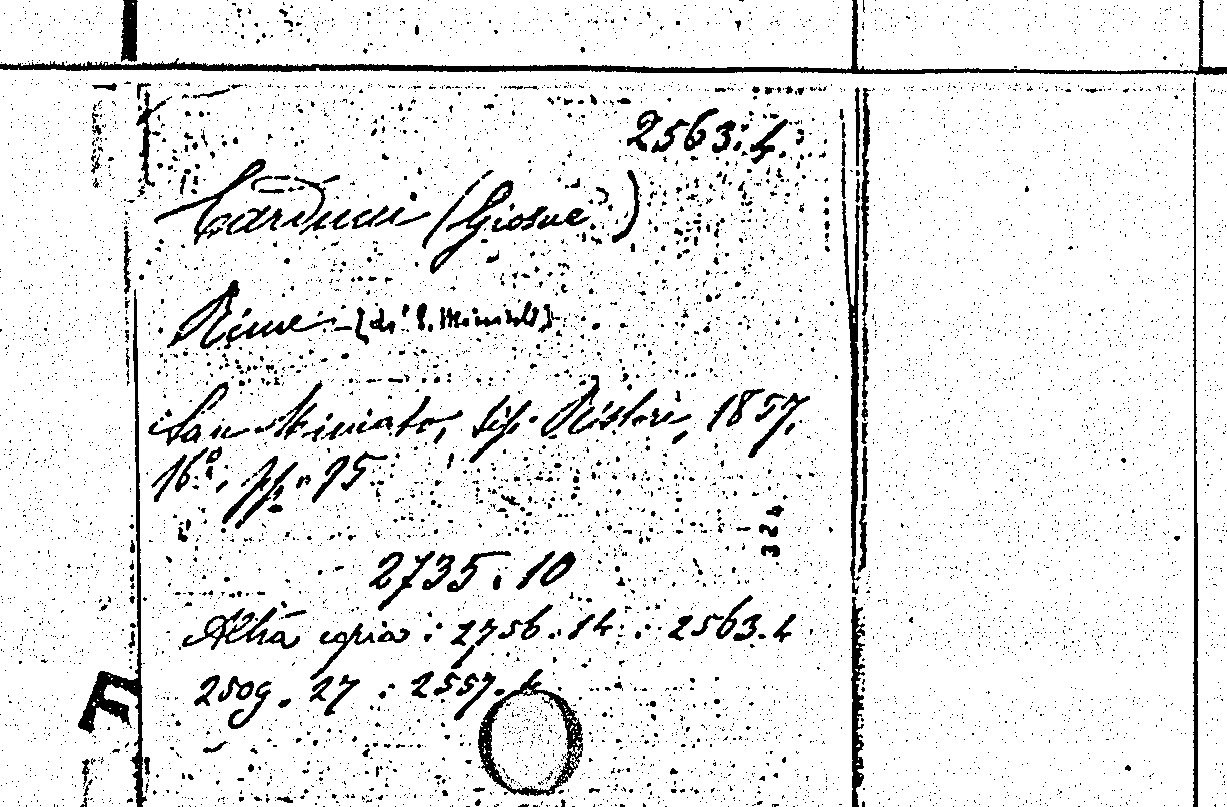 2563.4.
Carducci (Giosue)
Rime - [di S. Miniato]
San Miniato, tip. Ristori, 1857.
16°, pp. 95
324
2735.10
Altra copia : 2756.14 : 2563.4
2509.27 : 2557.4
F